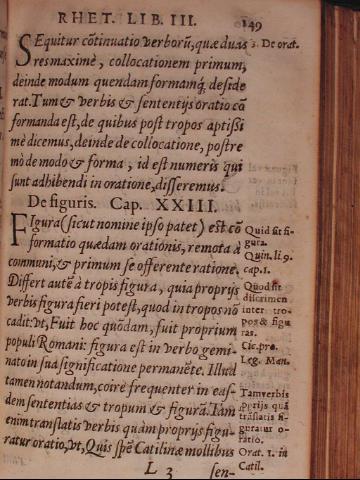 RHET. LIB. III. 149
SEquitur cōtinuatio verborū, quæ duas
res maximè, collocationem primum,
deinde modum quendam formamq́; deside
rat. Tum & verbis & sententijs oratio cō
formanda est, de quibus post tropos aptissi
mè dicemus, deinde de collocatione, postre
mò de modo & forma, id est numeris qui
sunt adhibendi in oratione, disseremus.
De figuris. Cap. XXIII.
FIgura (sicut nomine ipso patet) est cō
formatio quædam orationis, remota à
communi, & primum se offerente ratione.
Differt autē à tropis figura, quia proprijs
verbis figura fieri potest, quod in tropos nō
cadit: vt, Fuit hoc quōdam, fuit proprium
populi Romani: figura est in verbo gemi-
nato in sua significatione permanēte. Illud
tamen notandum, coire frequenter in eas-
dem sententias & tropum & figurā. Tam
enim translatis verbis quàm proprijs figu-
ratur oratio, vt, Quis spē Catilinæ mollibus
L 3 sen-
3. De orat.
Quid sit fi-
gura.
Quin. li. 9.
cap. 1.
Quod sit
discrimen
inter tro-
pos & figu
ras.
Cic. pro.
Leg. Man.
Tam verbis
proprijs quā
trāslatis fi-
guratur o-
ratio.
Orat. 1. in
Catil.